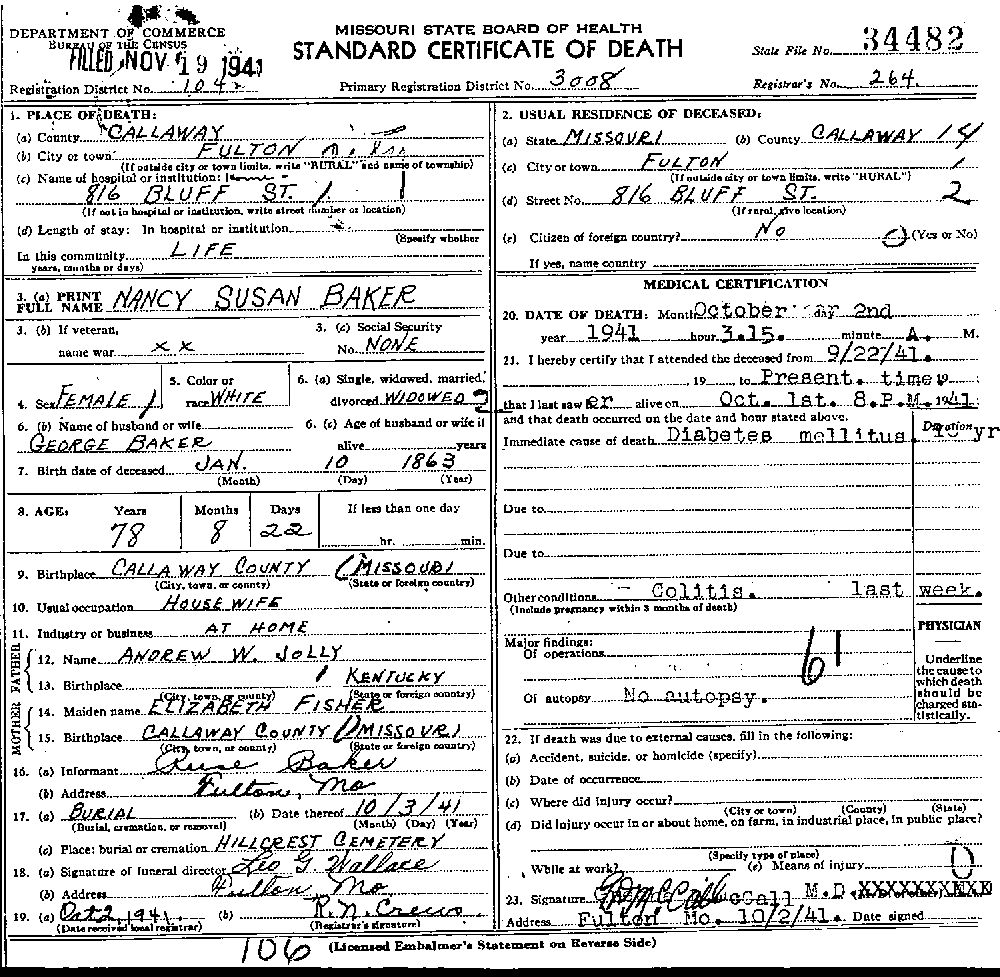 DEPARTMENT OF COMMERCE
BUREAU OF THE CENSUS
FILED NOV 19 1941
MISSOURI STATE BOARD OF HEALTH
STANDARD CERTIFICATE OF DEATH
State File No. 34482
Registration District No. 104
Primary Registration District No. 3008
Registrar's No. 264.
1. PLACE OF DEATH:
(a) County CALLAWAY
(b) City or town FULTON
(If outside city or town limits, write "RURAL" and name of township)
(c) Name of hospital or institution:
816 BLUFF ST.
(If not in hospital or institution, write street number or location)
(d) Length of stay: In hospital or institution
(Specify whether
In this community LIFE
years, months or days)
2. USUAL RESIDENCE OF DECEASED:
(a) State MISSOURI (b) County CALLAWAY 14
(c) City or town FULTON 1
(If outside city or town limits, write "RURAL")
(d) Street No. 816 BLUFF ST. 2
(If rural, give location)
(e) Citizen of foreign country? NO (Yes or No)
If yes, name country
3. (a) PRINT FULL NAME NANCY SUSAN BAKER
3. (b) If veteran,
name war XX
3. (c) Social Security
No. NONE
4. Sex FEMALE
5. Color or
race WHITE
6. (a) Single, widowed, married,
divorced WIDOWED
6. (b) Name of husband or wife
GEORGE BAKER
6. (c) Age of husband or wife if
alive years
7. Birth date of deceased JAN. 10 1863
(Month) (Day) (Year)
8. AGE: Years Months Days If less than one day
78 8 22 hr. min.
9. Birthplace CALLAWAY COUNTY MISSOURI
(City, town, or county) (State or foreign country)
10. Usual occupation HOUSEWIFE
11. Industry or business AT HOME
FATHER
12. Name ANDREW W. JOLLY
13. Birthplace KENTUCKY
(City, town, or county) (State or foreign country)
MOTHER
14. Maiden name ELIZABETH FISHER
15. Birthplace CALLAWAY COUNTY MISSOURI
(City, town, or county) (State or foreign country)
16. (a) Informant Baker
(b) Address Fulton, Mo
17. (a) BURIAL (b) Date thereof 10/3/41
(Burial, cremation, or removal) (Month) (Day) (Year)
(c) Place: burial or cremation HILLCREST CEMETERY
18. (a) Signature of funeral director Leo G. Wallace
(b) Address Fulton Mo
19. (a) Oct 2, 1941. (b) R.N. Crews
(Date received local registrar) (Registrar's signature)
MEDICAL CERTIFICATION
20. DATE OF DEATH: Month October day 2nd
year 1941 hour 3.15. minute A. M.
21. I hereby certify that I attended the deceased from 9/22/41.
, 19 to Present. time, 19
that I last saw er alive on Oct. 1st. 8.P.M. 1941
and that death occurred on the date and hour stated above.
Duration
Immediate cause of death Diabetes mellitus yr
Due to
Due to
Other conditions - Colitis. last week.
(Include pregnancy within 3 months of death)
PHYSICIAN
Major findings:
Of operations
61
Of autopsy No autopsy.
Underline
the cause to
which death
should be
charged sta-
tistically.
22. If death was due to external causes, fill in the following:
(a) Accident, suicide, or homicide (specify)
(b) Date of occurrence
(c) Where did injury occur?
(City or town) (County) (State)
(d) Did injury occur in or about home, on farm, in industrial place, in public place?
(Specify type of place)
While at work? (e) Means of injury
23. Signature McCall M.D.
Address Fulton Mo. 10/2/41. Date signed
106 (Licensed Embalmer's Statement on Reverse Side)